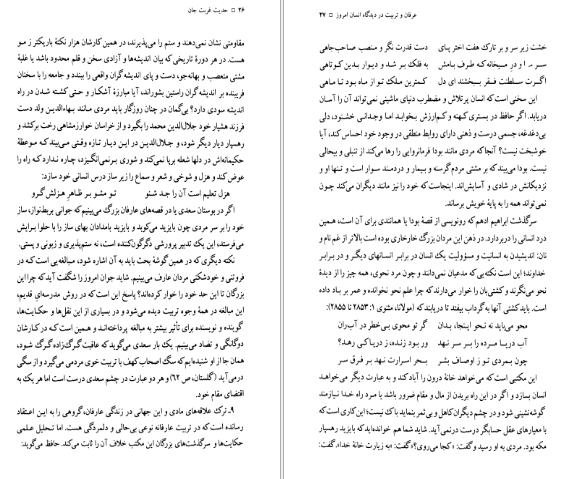 ۲۶ □ حدیث غربت جان
مقاومتی نشان نمی‌دهند و ستم را می‌پذیرند، در همین کارشان هزار نکتهٔ باریکتر ز مو
هست. در هر دورهٔ تاریخی که بیان اندیشه‌ها و آزادی سخن و قلم محدود باشد یا غلبهٔ
مشتی متعصب و بهانه‌جو، دست و پای اندیشه‌گران واقعی را ببندد و جامعه را با سخنان
فریبنده بر اندیشه‌گران راستین بشوراند، آیا مبارزهٔ آشکار و حتی کشته شدن در راه
اندیشه سودی دارد؟ بی‌گمان در چنان روزگار باید مردی مانند بهاءالدین ولد دست
فرزند هشیار خود جلال‌الدین محمد را بگیرد و از خراسان خوارزمشاهی رخت برکشد و
رهسپار دیار دیگر شود، و جلال‌الدین در این دیار تازه وقتی می‌بیند که موعظهٔ
حکیمانه‌اش در دلها شعله برپا نمی‌کند و شوری برنمی‌انگیزد، چاره ندارد که راه را
عوض کند و هزل و شوخی و شعر و سماع را زیر ساز درس انسانی خود سازد:
هزل تعلیم است آن را جد شنو تو مشو بر ظاهر هزلش گرو
اگر در بوستان سعدی یا در قصه‌های عارفان بزرگ می‌بینیم که جوانی بربط‌نواز، ساز
خود را بر سر مردی چون بایزید می‌کوبد و بایزید بامدادان بهای ساز را با حلوا برایش
می‌فرستد، این یک تدبیر پرورشی دگرگون‌کننده است، نه ستم‌پذیری و زبونی و پستی.
نکته دیگری که در همین گوشهٔ بحث باید به آن اشاره شود، مبالغه‌یی است که در
فروتنی و خودشکنی مردان عارف می‌بینیم. شاید جوان امروز را شگفت آید که چرا این
بزرگان تا این حد خود را خوار کرده‌اند؟ پاسخ این است که در روش مدرسه‌ای قدیم،
این مبالغه در همهٔ وجوه تربیت دیده می‌شود و در بسیاری از این نقل‌ها و حکایت‌ها،
گوینده و نویسنده برای تأثیر بیشتر به مبالغه پرداخته‌اند و همین است که در کارشان
دوگانگی و تضاد می‌بینیم. یک بار سعدی می‌گوید که عاقبت گرگ‌زاده گرگ شود،
همان جا از او شنیده‌ایم که سگ اصحاب کهف با تربیت خوی مردمی می‌گیرد و از سگی
درمی‌آید (گلستان، ص ۶۲) و هر دو عبارت در چشم سعدی درست است اما هر یک به
اقتضای مقام خود.
۹. ترک علاقه‌های مادی و این جهانی در زندگی عارفان، گروهی را به این اعتقاد
رسانده است که در تربیت عارفانه نوعی بی‌حالی و دلمردگی هست. اما تحلیل علمی
حکایت‌ها و سرگذشت‌های بزرگان این مکتب خلاف آن را ثابت می‌کند. حافظ می‌گوید:
عرفان و تربیت در دیدگاه انسان امروز □ ۲۷
خشت زیر سر و بر تارک هفت اختر پای دست قدرت نگر و منصب صاحب‌جاهی
سر ما و در میخانه که طرف بامش به فلک بر شد و دیوار بدین کوتاهی
اگرت سلطنت فقر ببخشند ای دل کمترین ملک تو از ماه بود تا ماهی
این سخنی است که انسان پرتلاش و مضطرب دنیای ماشینی نمی‌تواند آن را آسان
دریابد. اگر حافظ در بستری کهنه و کم‌ارزش بخوابد اما وجدانی خشنود، دلی
بی‌دغدغه، جسمی درست و ذهنی دارای روابط منطقی در وجود خود احساس کند، آیا
خوشبخت نیست؟ آنجا که مردی مانند بودا فرمانروایی را رها می‌کند از تنبلی و بیحالی
نیست. بودا می‌بیند که بر مشتی مردم گرسنه و بیمار و دردمند سوار است و تنها او و
نزدیکانش در شادی و آسایش‌اند. اینجاست که خود را نیز مانند دیگران می‌کند چون
نمی‌تواند همه را به پایهٔ خویش برساند.
سرگذشت ابراهیم ادهم که رونویسی از قصهٔ بودا یا همانندی برای آن است، همین
درد انسانی را دربردارد. در ذهن این مردان بزرگ خارخاری بوده است بالاتر از غم نام و
نان: اندیشیدن به انسانیت و مسؤولیت یک انسان در برابر انسانهای دیگر و در برابر
خداوند؛ این است نکته‌یی که مدعیان نمی‌دانند و چون مرد نحوی، همه چیز را از دیدهٔ
نحو می‌نگرند و کشتی‌بان را خوار می‌دارند که چرا علم نحو نخوانده و عمر بر باد داده
است. باید کشتی آنها به گرداب بیفتد تا دریابند که (مولانا، مثنوی ۱: ۲۸۵۳ تا ۲۸۵۵):
محو می‌باید نه نحو اینجا، بدان گر تو محوی بی‌خطر در آب ران
آب دریا مرده را بر سر نهد ور بود زنده، ز دریا کی رهد؟
چون بمردی تو ز اوصاف بشر بحر اسرارت نهد بر فرق سر
این مکتبی است که می‌خواهد خانهٔ درون را آباد کند و به عبارت دیگر می‌خواهد
انسان بسازد و اگر در این راه بریدن از مال و مقام ضرور باشد یا مرد راه خدا نیازمند
گوشه‌نشینی شود و در چشم دیگران کاهل و بی‌ثمر بنماید باک نیست؛ این کاری است که
با معیارهای عقل حسابگر درست درنمی‌آید. شاید شما هم خوانده‌اید که بایزید رهسپار
مکه بود. مردی به او رسید و گفت: «کجا می‌روی؟» گفت: «به زیارت خانهٔ خدا.» گفت: